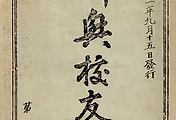 一年九月十五日發行
興校友
第